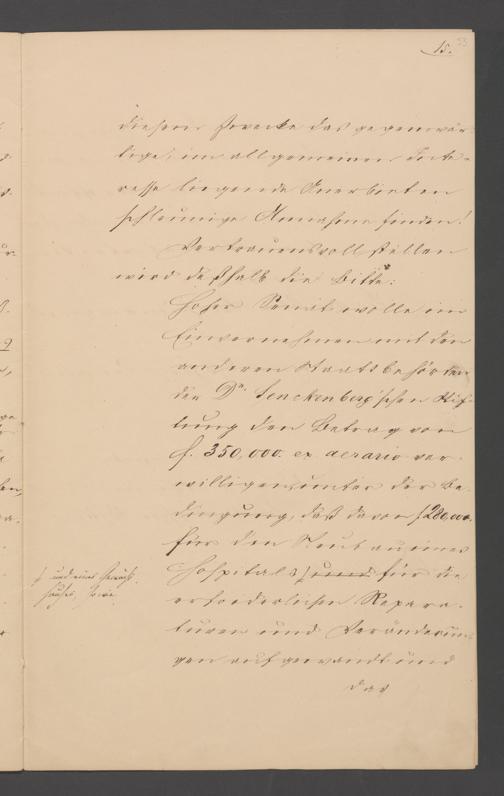 15. 53
diesem Zwecke das gegenwär-
tige, im allgemeinen Inte-
resse liegende Anerbieten
schleunige Annahme finden!
Vertrauensvoll stellen
wird deßhalb die Bitte:
Hoher Senat wolle im
Einvernehmen mit den
anderen Staatsbehörden
der Dr. Senckenberg'schen Stif-
tung den Betrag von
f. 350,000. ex aerario ver-
willigen, unter der Be-
dingung, daß davon f 280,000.
für den Neubau eines
Hospitals, und für die
erforderlichen Repara-
turen und Veränderun-
gen aufgewandt und
das
f und eines Gewächs
hauses, sowie